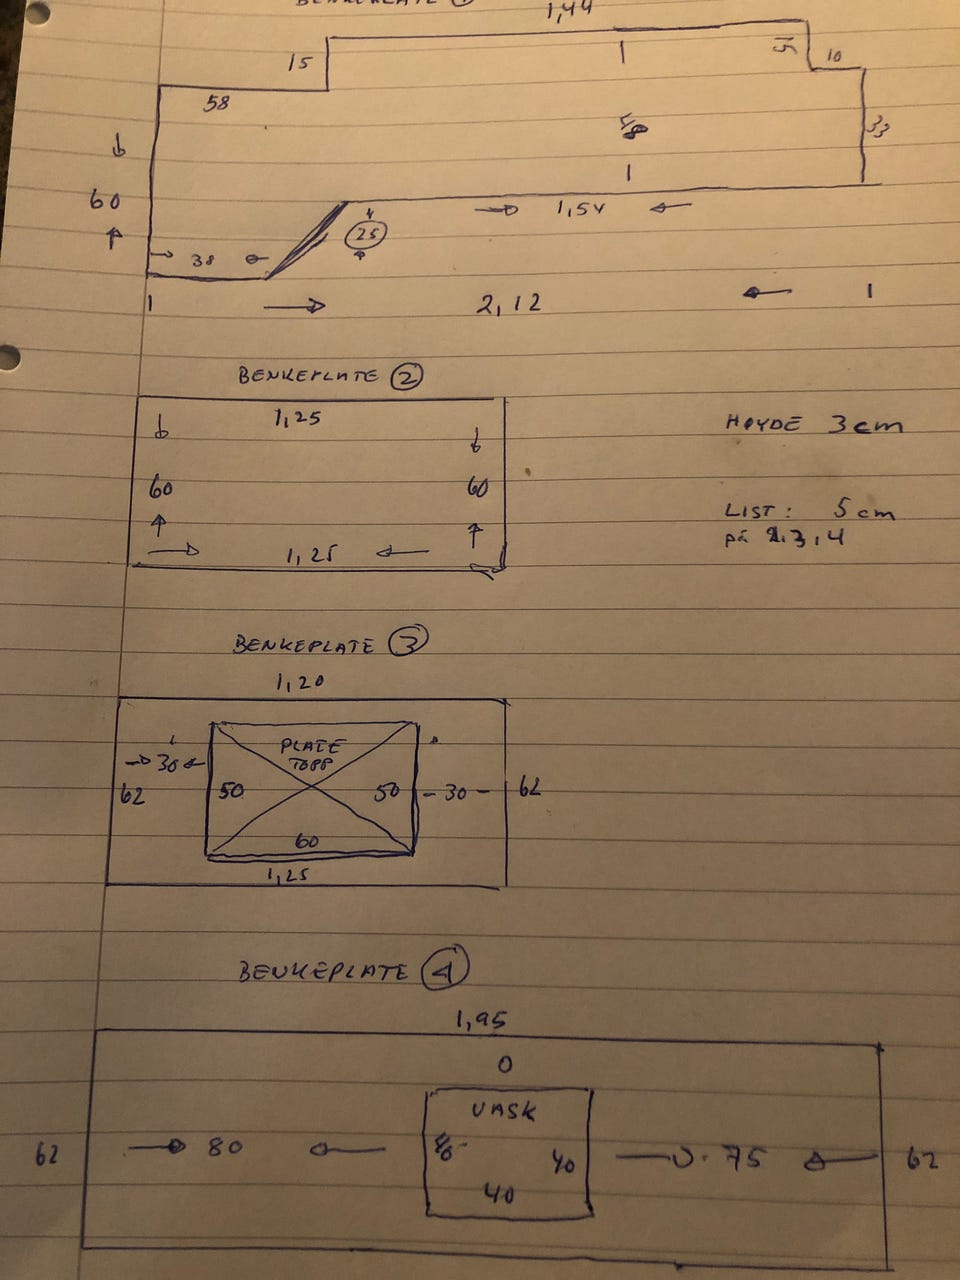 BENKEPLATE 1
1,44
15
15
10
58
48
33
60
1,54
25
38
1
2,12
1
BENKEPLATE 2
1,25
HØYDE 3 cm
60
60
LIST: 5 cm
1,25
på 2,3,4
BENKEPLATE 3
1,20
PLATE
TOPP
30
62
50
50
30
62
60
1,25
BENKEPLATE 4
1,95
O
VASK
62
80
40
40
75
62
40